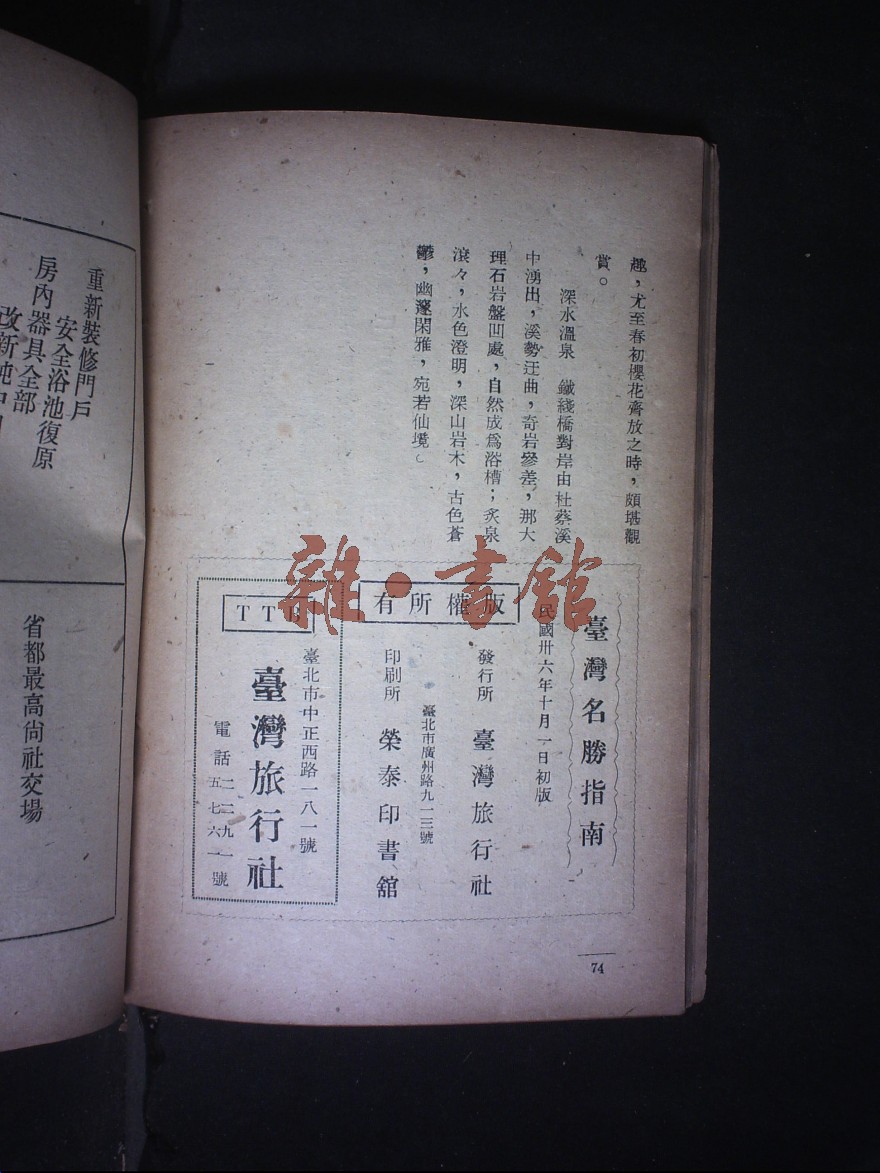 趣，尤至春初櫻花齊放之時，頗堪觀
賞。
深水溫泉　鐵綫橋對岸由杜蔡溪
中湧出，溪勢迂曲，奇岩參差，那大
理石岩盤凹處，自然成爲浴槽；炙泉
滾々，水色澄明，深山岩木，古色蒼
鬱，幽邃閑雅，宛若仙境。
臺灣名勝指南
民國卅六年十月一日初版
版權所有
發行所　臺灣旅行社
臺北市廣州路九一三號
印刷所　榮泰印書舘
臺北市中正西路一八一號
臺灣旅行社
電話 二二九一 五七六一 號
74
重新裝修門戶
安全浴池復原
房內器具全部
省都最高尙社交場
雜·書舘